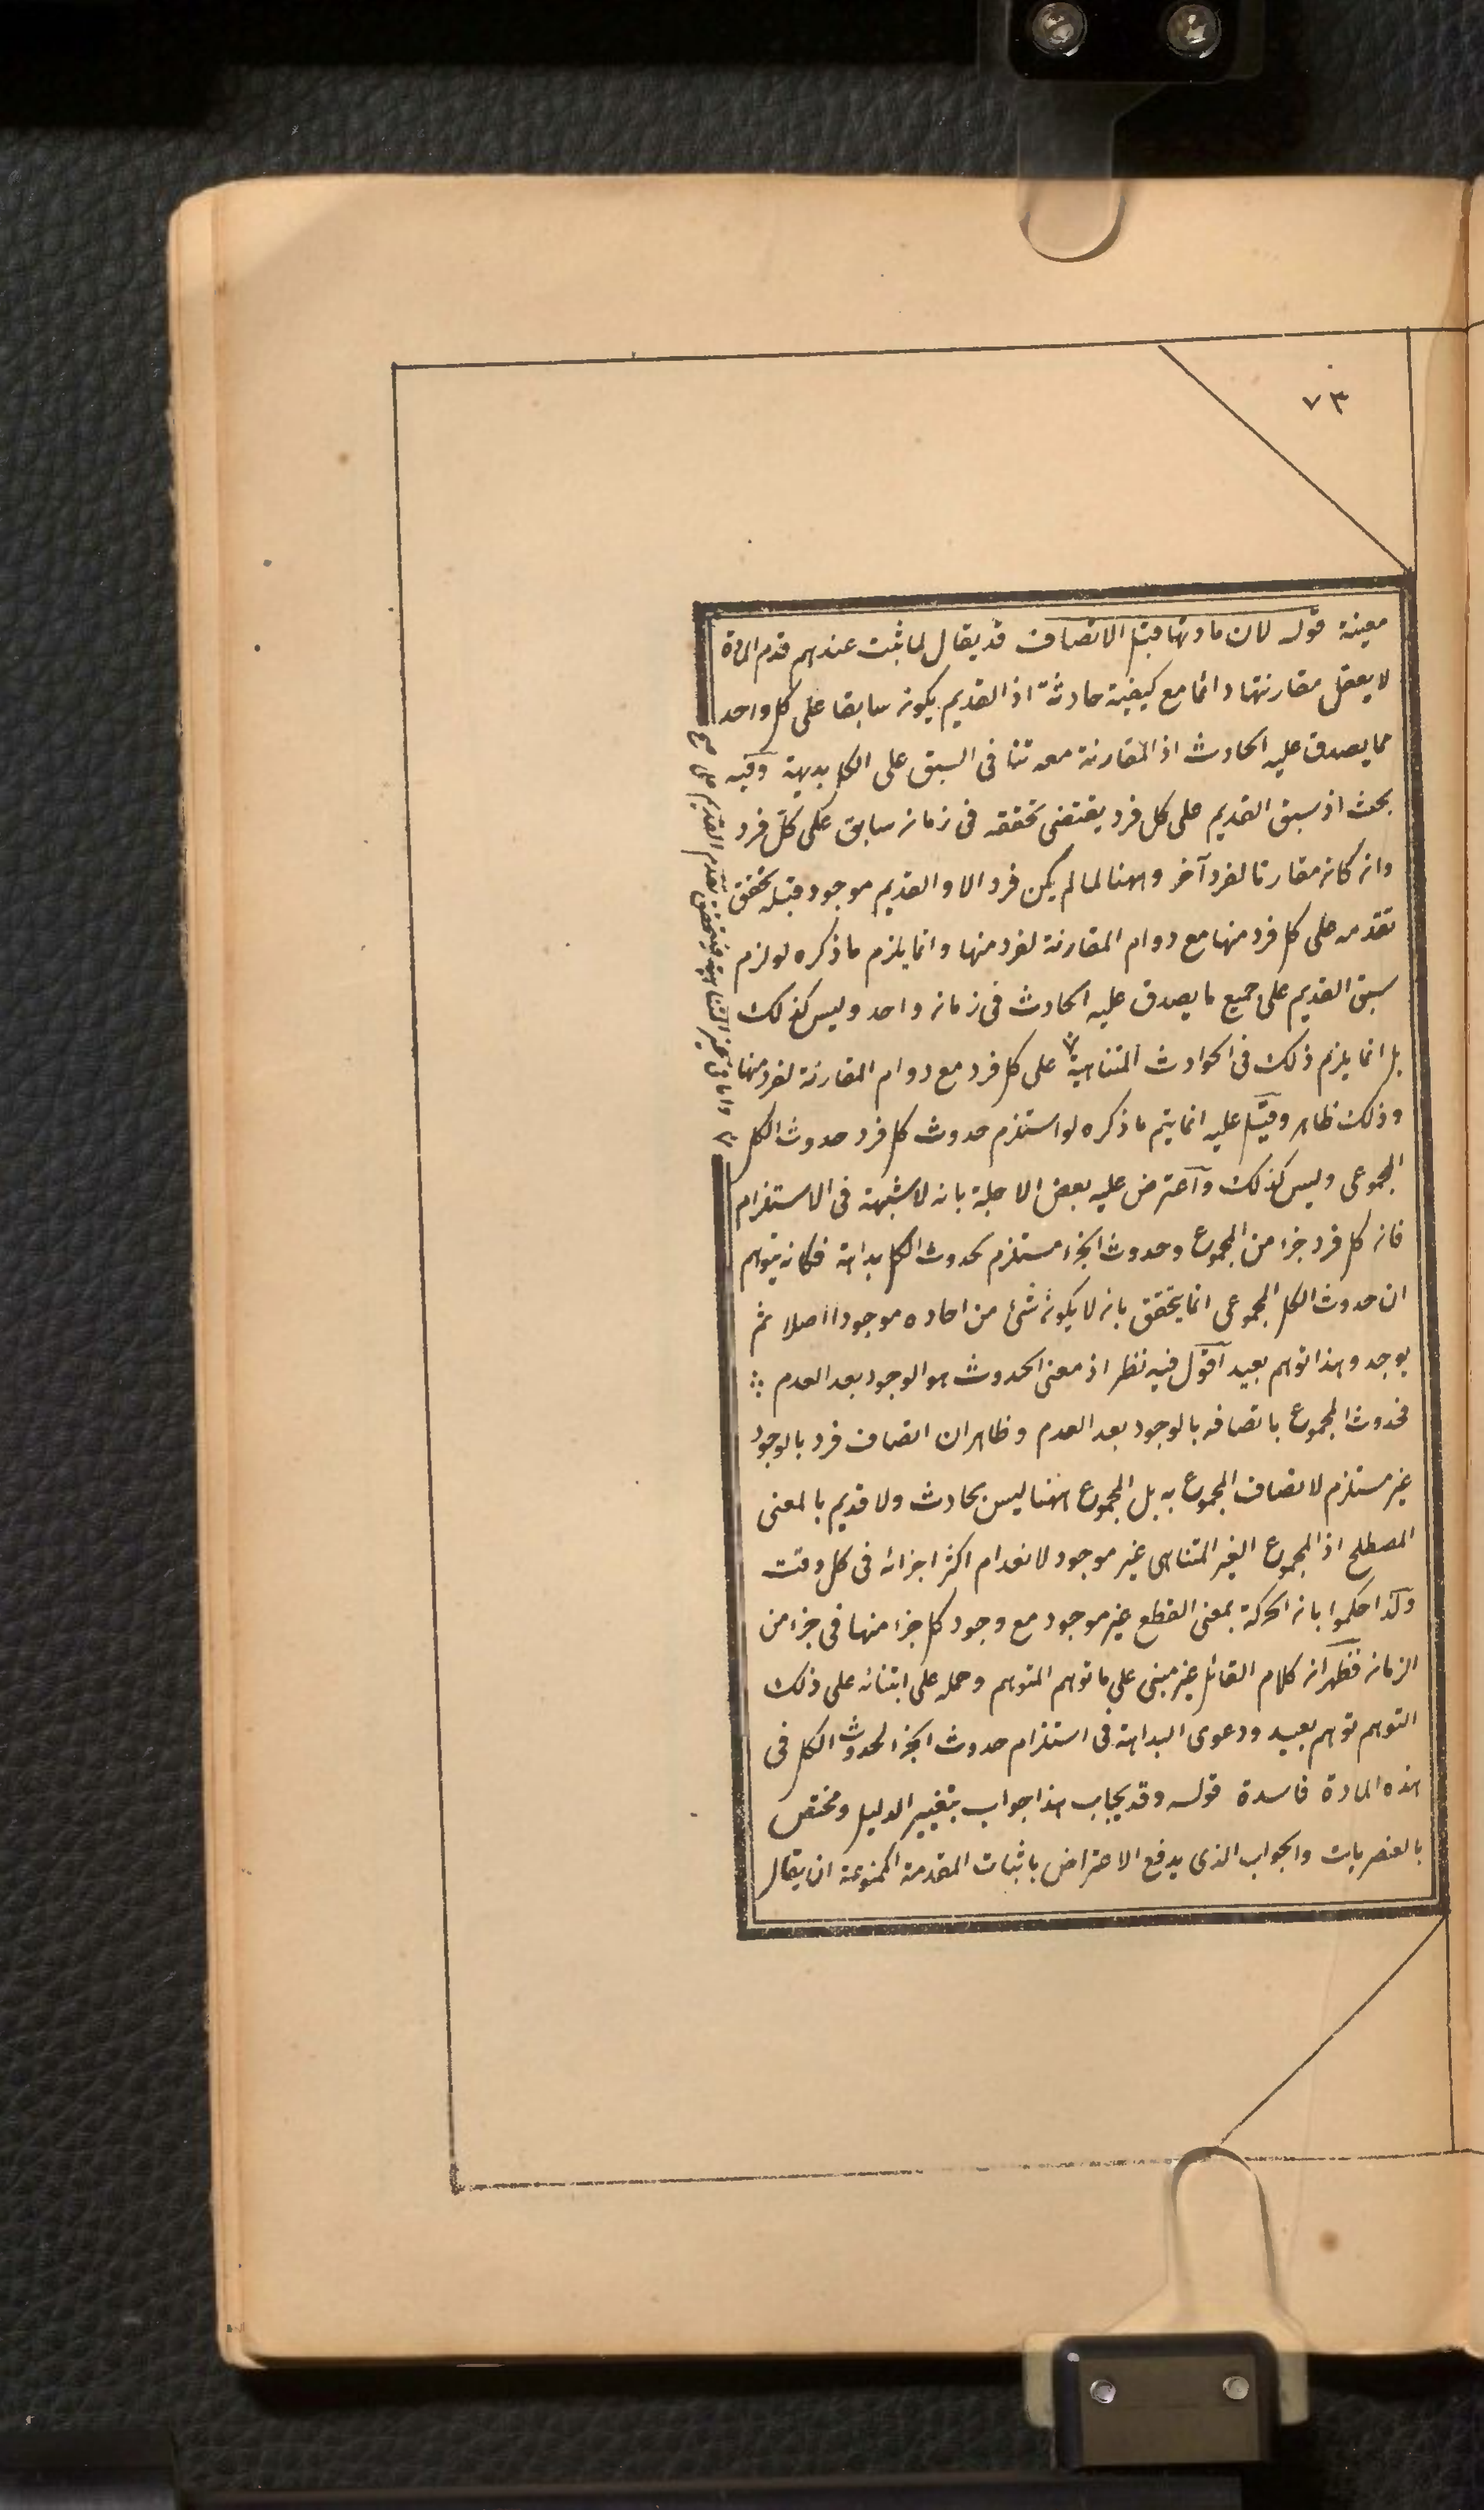 ٧٣
معينة قوله لان مادتها قبل الاتصاف قد يقال لما ثبت عندهم قدم المادة
لا يعقل مقارنتها دائما مع كيفية حادثة اذ القديم يكون سابقا على كل واحد
مما يصدق عليه الحادث اذ المقارنة معه تنافى السبق على الكل بديهة وفيه
بحث اذ سبق القديم على كل فرد يقتضى تحققه فى زمان سابق على كل فرد
وان كان مقارنا لفرد آخر وههنا لما لم يكن فرد الا والقديم موجود قبله تحقق
تقدمه على كل فرد منها مع دوام المقارنة لفرد منها وانما يلزم ما ذكره لو لزم
سبق القديم على جميع ما يصدق عليه الحادث فى زمان واحد وليس كذلك
بل انما يلزم ذلك فى الحوادث المتناهية٧ على كل فرد مع دوام المقارنة لفرد منها
وذلك ظاهر وقيل عليه انما يتم ما ذكره لو استلزم حدوث كل فرد حدوث الكل
المجموعى وليس كذلك وآعترض عليه بعض الاجلة بانه لا شبهة فى الاستلزام
فان كل فرد جزء من المجموع وحدوث الجزء مستلزم لحدوث الكل بداهة فكانه يتوهم
ان حدوث الكل المجموعى انما يتحقق بان لا يكون شئ من احاده موجودا اصلا ثم
يوجد وهذا توهم بعيد آقول فيه نظر اذ معنى الحدوث هو الوجود بعد العدم
فحدوث المجموع باتصافه بالوجود بعد العدم وظاهر ان اتصاف فرد بالوجود
غير مستلزم لاتصاف المجموع به بل المجموع ههنا ليس بحادث ولا قديم بالمعنى
المصطلح اذ المجموع الغير المتناهى غير موجود لانعدام اكثر اجزائه فى كل وقت
ولذا حكموا بان الحركة بمعنى القطع غير موجود مع وجود كل جزء منها فى جزء من
الزمان فظهر ان كلام القائل غير مبنى على ما توهم المتوهم وحمله على ابتنائه على ذلك
التوهم توهم بعيد ودعوى البداهة فى استلزام حدوث الجزء لحدوث الكل فى
هذه المادة فاسدة قوله وقد يجاب هذا جواب بتغيير الدليل ومختص
بالعنصريات والجواب الذى يدفع الاعتراض باثبات المقدمة الممنوعة ان يقال
٧ واما فى غير المتناهية فيتحقق تقدم القديم على صح